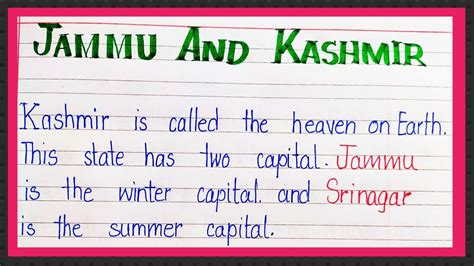 JAMMU AND KASHMIR
Kashmir is called the heaven on Earth.
This state has two capital. Jammu
is the winter capital. and Srinagar
is the summer capital.